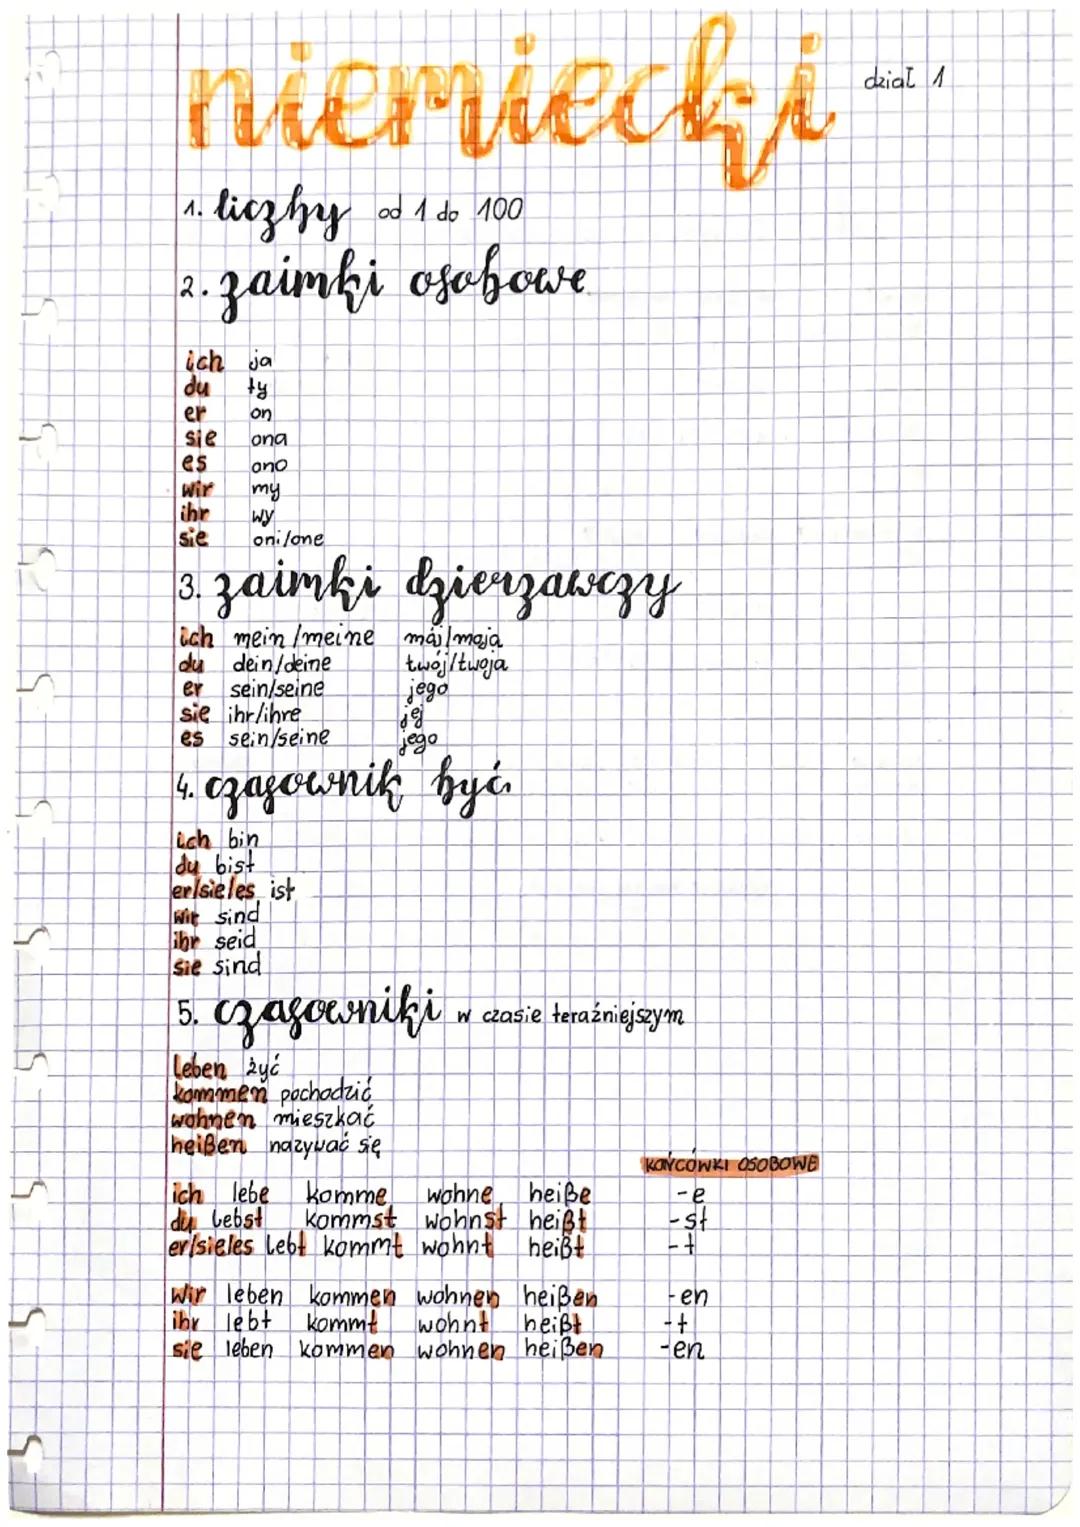 niemiecki dział 1
1. liczby od 1 do 100
2. zaimki osobowe
ich ja
du ty
er on
sie ona
es ono
wir my
ihr wy
sie oni/one
3. zaimki dzierzawczy
ich mein/meine máj/moja
du dein/deine twój/twoja
er sein/seine jego
sie ihr/ihre jej
es sein/seine jego
4. czasownik być
ich bin
du bist
er/sie/es ist
wir sind
ihr seid
sie sind
5. czasowniki w czasie teraźniejszym
leben żyć
kommen pochodzić
wohnen mieszkać
heißen nazywać się
KOŃCÓWKI OSOBOWE
ich lebe komme wohne heiße -e
du lebst kommst wohnst heißt -st
er/sie/es lebt kommt wohnt heißt -t
wir leben kommen wohnen heißen -en
ihr lebt kommt wohnt heißt -t
sie leben kommen wohnen heißen -en